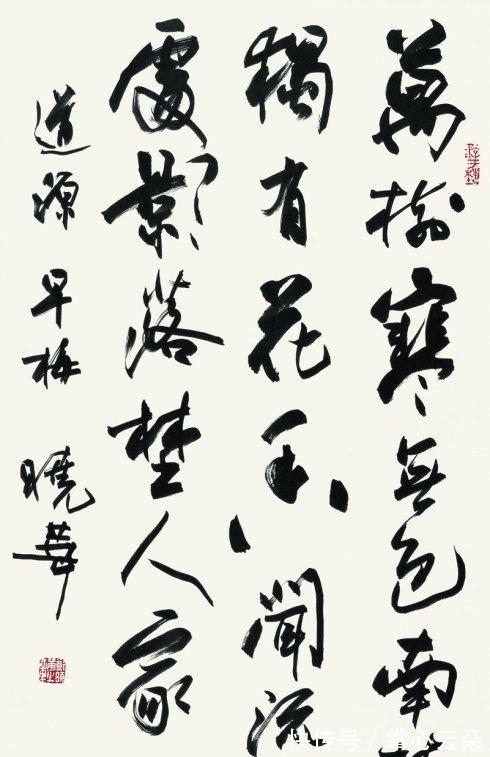 萬樹寒無色南枝
獨有花香聞流
處影落埜人家
道源 早梅 曉華
快传号 / 掌心云朵